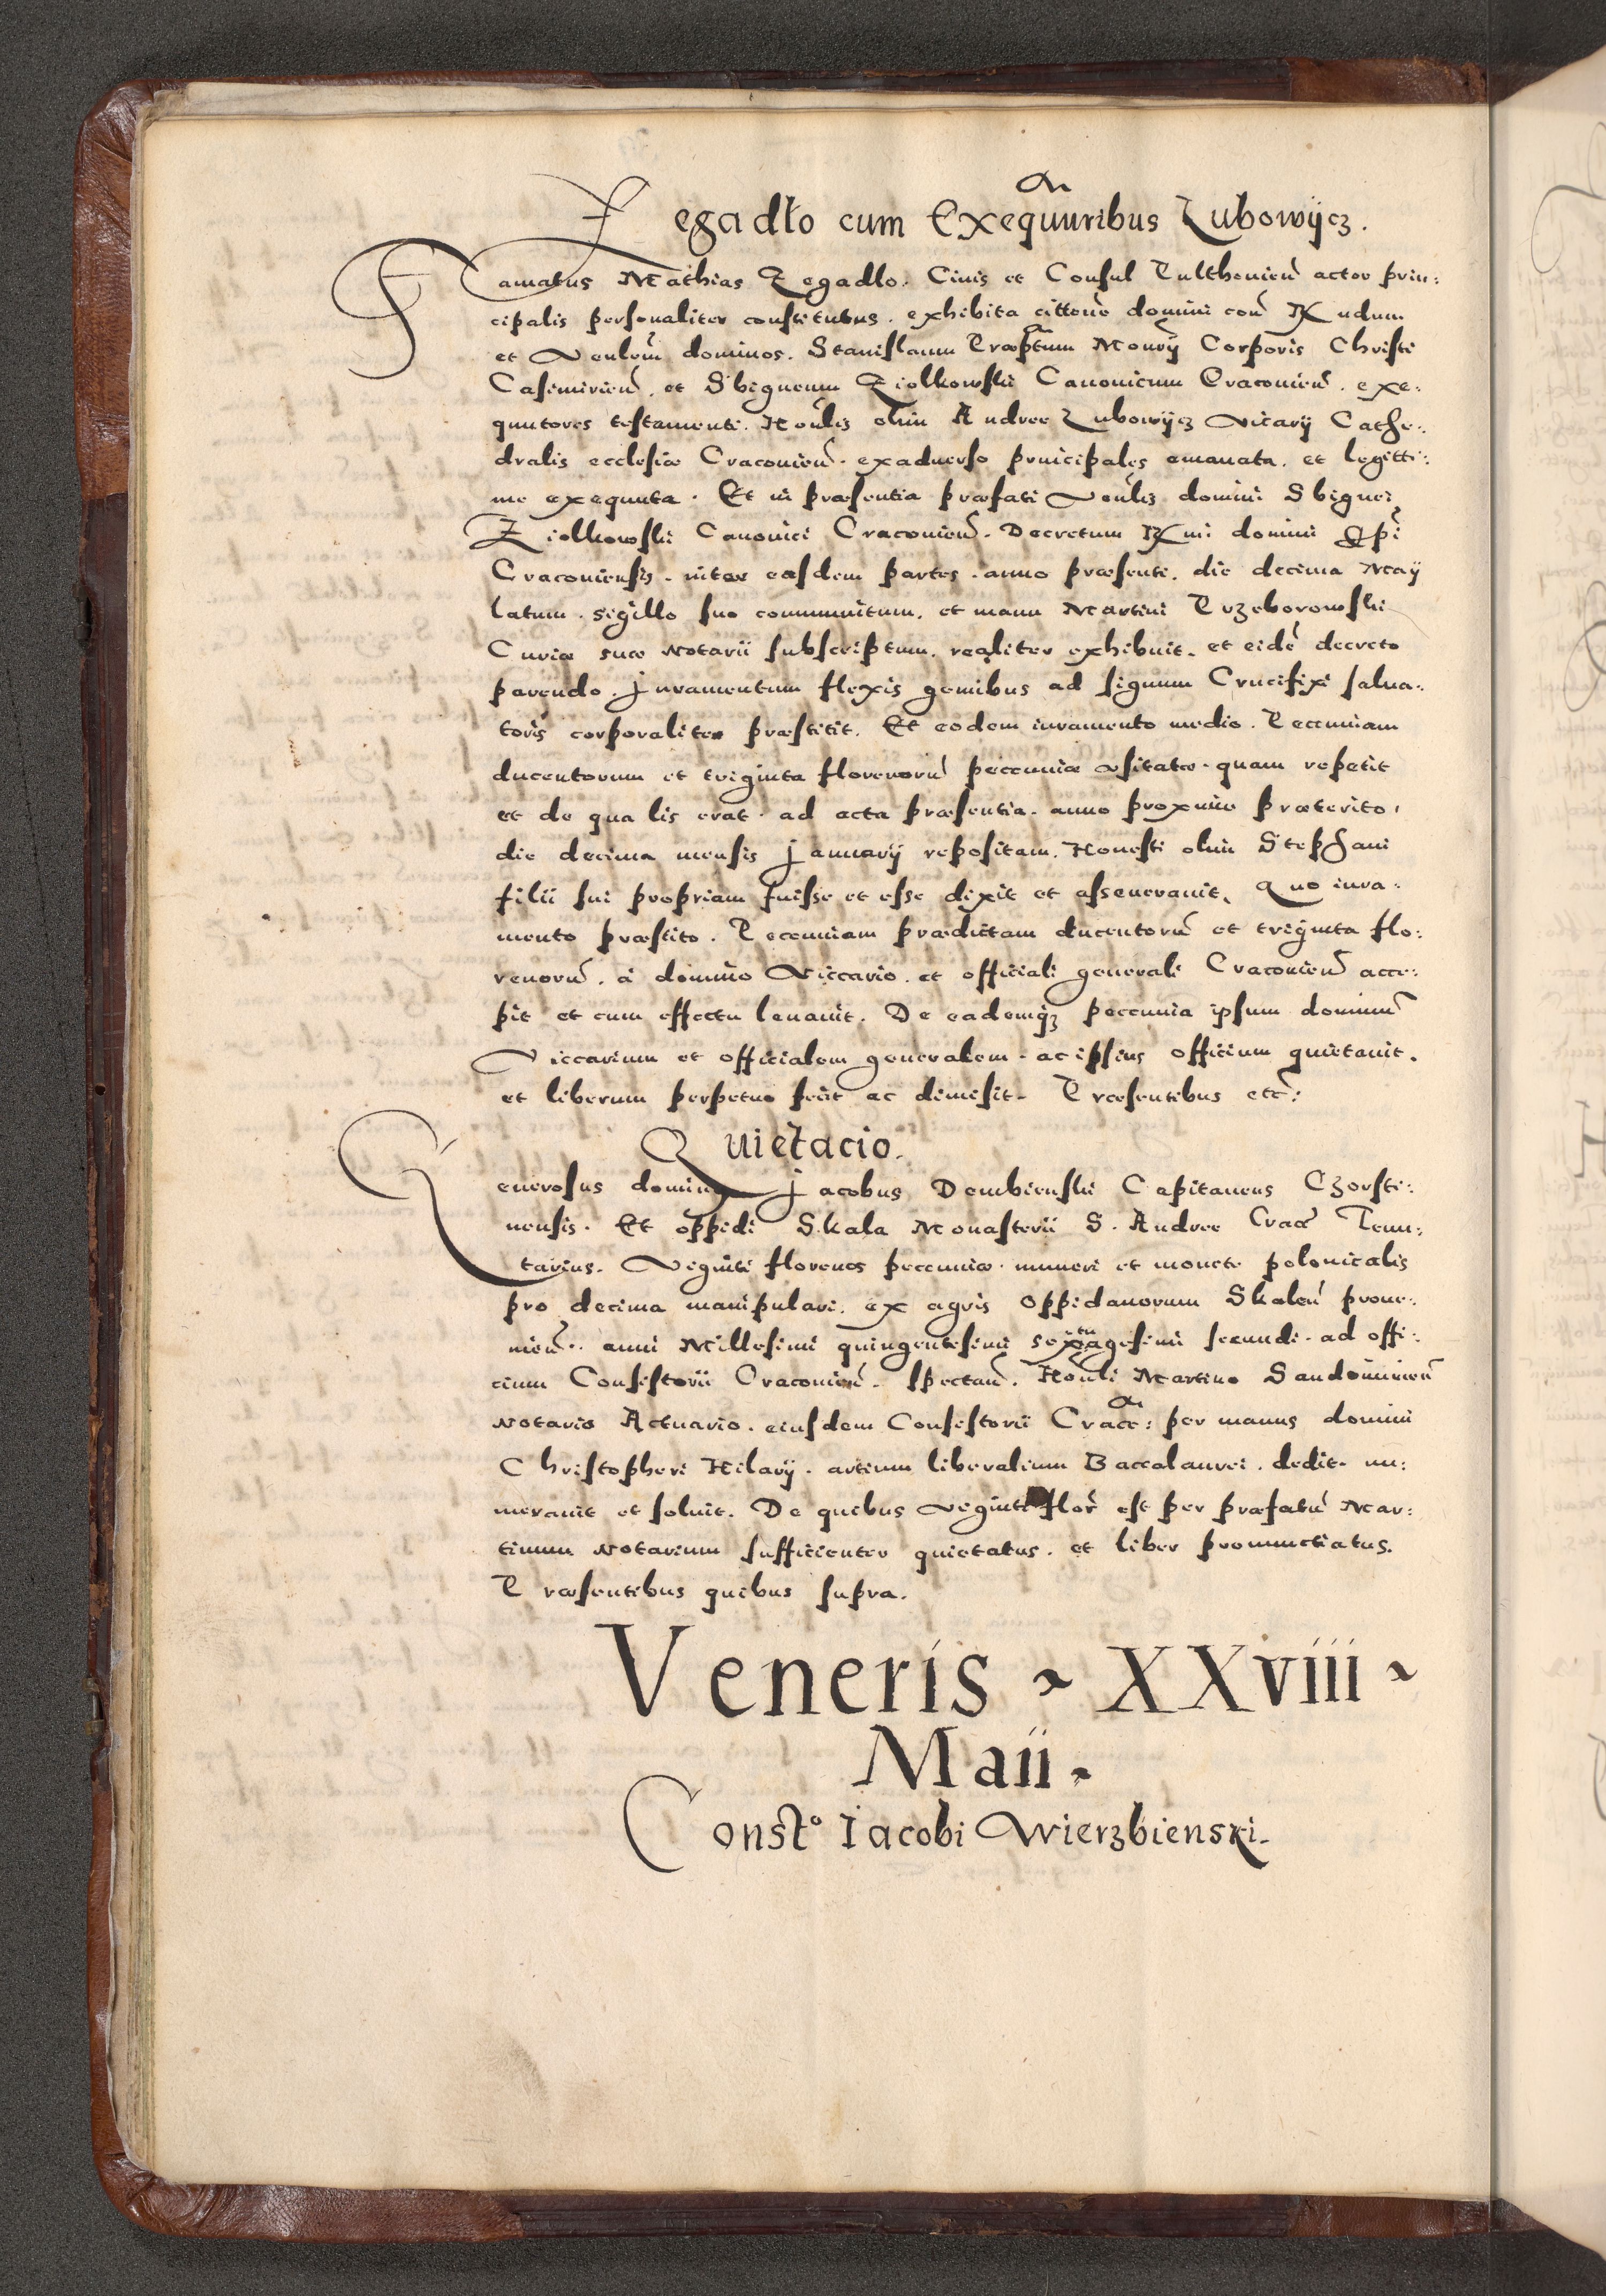 Zegadło cum Exequuribus Lubowijcz.
Famatus Mathias Zegadlo. Ciuis et Consul Pulthouien̄ actor prin:
cipalis personaliter constitutus. exhibita cittone domini con̄ Rx̄ndum
et Venlem̄ dominos. Stanislaum Præptum Monrÿ Corporis Christi
Casimirien̄. et Sbigneum Ziolkowski Canonicum Cracouien̄. exe:
quutores testamenti. Honlis olim Andree Lubowijcz Vicarij Cathe:
dralis ecclesiæ Cracouien̄. exaduerso principales emanata. et legitti:
me exequuta. Et in præsentia præfati Venlis domini Sbignei
Ziolkowski Canonici Cracouien̄. Decretum Rx̄mi domini Ep̄i
Cracouiensis. inter easdem partes. anno præsenti. die decima Maij
latum. sigillo suo communitum. et manu Martini Przeborowski
Curiæ suæ Notarii subscriptum. realiter exhibuit. et eidē decreto
parendo. Juramentum flexis genibus ad signum Crucifixi salua:
toris corporaliter præstitit. Et eodem iuramento medio. Pecuniam
ducentorum et triginta florenorū pecuniæ usitatæ. quam repetit
et de qua lis erat. ad acta præsentia. anno proxime præterito,
die decima mensis Januarij repositam. Honesti olim Stephani
filii sui propriam fuisse et esse dixit et asseuerauit. Quo iura:
mento præstito. Pecuniam prædictam ducentorū et triginta flo:
renorū. à domino Viccario. et officiali generali Cracouien̄ acce:
pit et cum effectu leuauit. De eademqz pecunia ipsum dominū
Viccarium et officialem generalem. ac ipsius officium quietauit.
et liberum perpetuo fecit ac dimisit. Præsentibus etc:
Quietacio.
Generosus dominus Jacobus Dembienski Capitaneus Czorsti:
nensis. Et oppidi Skala Monasterii S. Andree Crac̄ Tenu:
tarius. Viginti florenos pecuniæ. numeri et monete polonicalis
pro decima manipulari. ex agris Oppidanorum Skalen̄ proue:
nien̄. anni Millesimi quingentesimi sexagesimi secundi. ad offi:
cium Consistorii Cracouien̄. spectan̄. Honli Martino Sandomirien̄
Notario Actuario. eiusdem Consistorii Cracc: per manus domini
Christopheri Hilarij. artium liberalium Baccalaurei. dedit. nu:
merauit et soluit. De quibus viginti flor̄ est per præfatū Mar:
tinum Notarium sufficienter quietatus. et liber pronunctiatus.
Præsentibus quibus supra.
Veneris ~ XXviii ~
Maii.
Const° Iacobi Wierzbienski.